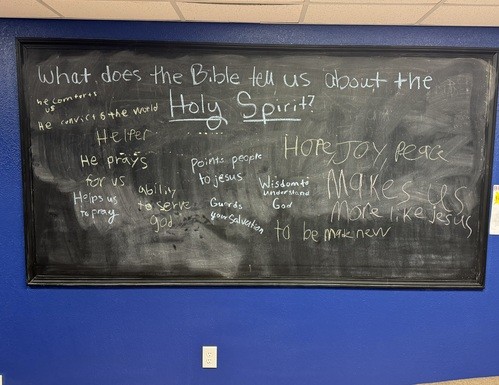 What does the Bible tell us about the
Holy Spirit?
he comforts
us
He convicts the world
Helper
He prays
for us
Helps us
to pray
ability
to serve
god
Points people
to jesus
Guards
your Salvation
Wisdom to
understand
God
Hope, Joy, Peace
Makes us
More like Jesus
to be made new